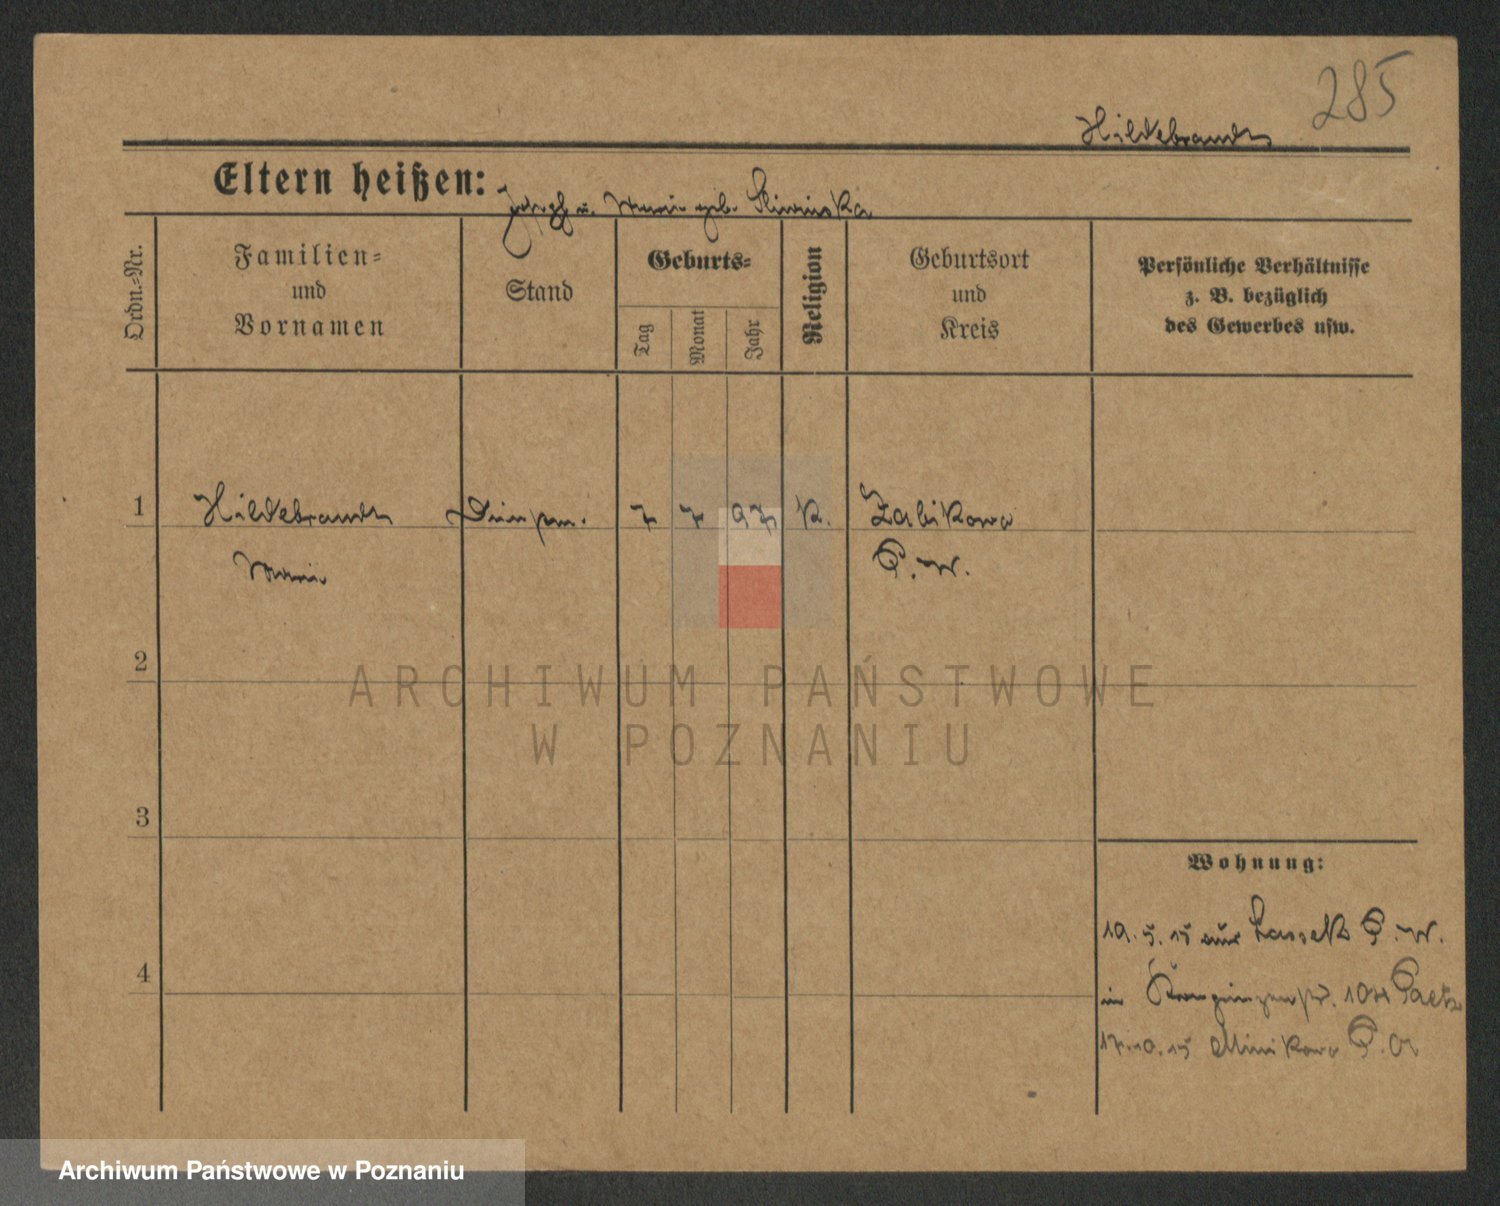 285
Hildebrandt
Eltern heißen: Joseph u. Marie geb. Sliwinska
Ordn.-Nr.
Familien-
und
Vornamen
Stand
Geburts-
Tag
Monat
Jahr
Religion
Geburtsort
und
Kreis
Persönliche Verhältnisse
z. B. bezüglich
des Gewerbes usw.
1 Hildebrandt 7 7 97 K. Zabikowo
Marie P. W.
2
ARCHIWUM PAŃSTWOWE
W POZNANIU
3
Wohnung:
19. 5. 15 aus Lassek P. W.
4
in Kronprinzenstr. 104 Paetz
17.10.15 Minikowo P. O
Archiwum Państwowe w Poznaniu